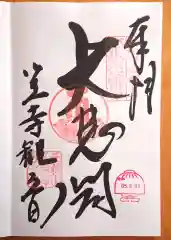 奉拝
大悲閣
笠寺観音